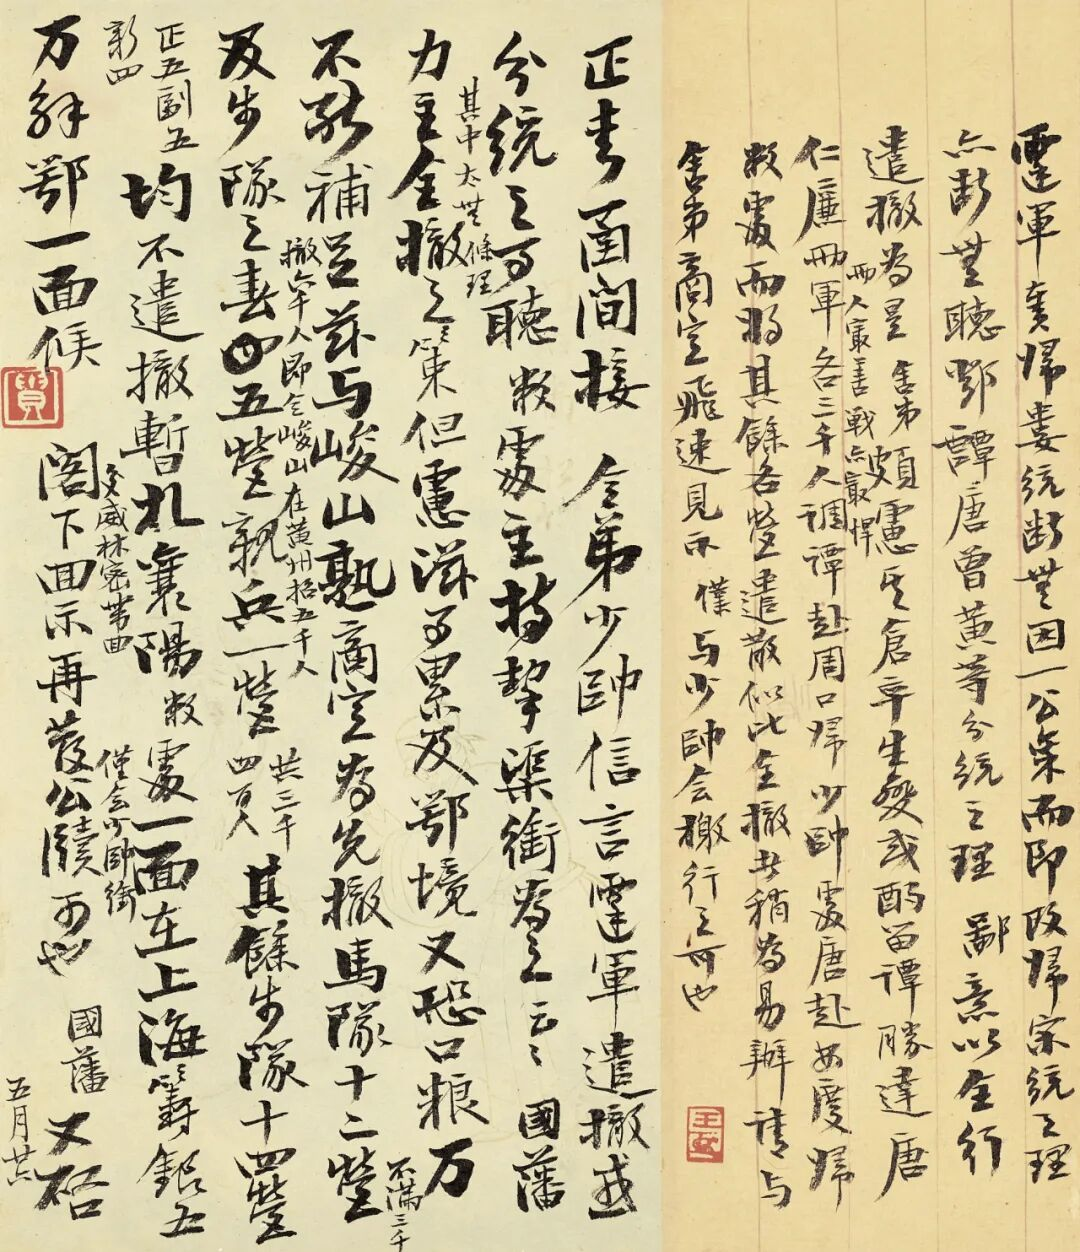 霆軍責歸婁統斷無因一公氣而即改歸宋統之理
亦斷無聽鄂譚唐曾黃等分統之理 鄙意以全行
遣撤為是 舍弟頗慮其倉卒生變或酌留譚勝達唐
兩人最善戰亦最悍
仁廉兩軍各三千人調譚赴周口歸少帥處唐赴安慶歸
敝處而將其餘各營遣散似比全撤者稍為易辦請與
舍弟商定飛速見示 僕與少帥會檄行之可也
正書函間接 令弟少帥信言霆軍遣撤或
分統之可聽敝處主持挈渠銜為之云云 國藩
其中太無條理
力主全撤之策但慮滋事累及鄂境又恐口粮万
不能補足茲与峻山熟商定為先撤馬隊十二營
不滿三千
撤六千人即令峻山在黃州招五千人
及步隊之春 五營親兵一營
共三千
四百人
其餘步隊十四營
正五副五
新四
均不遣撤暫札襄陽敝處一面在上海籌銀五
僅会少帥銜
交威林密帶回
万解鄂一面候 閣下回示再發公牘可也
國藩又啓
五月廿六